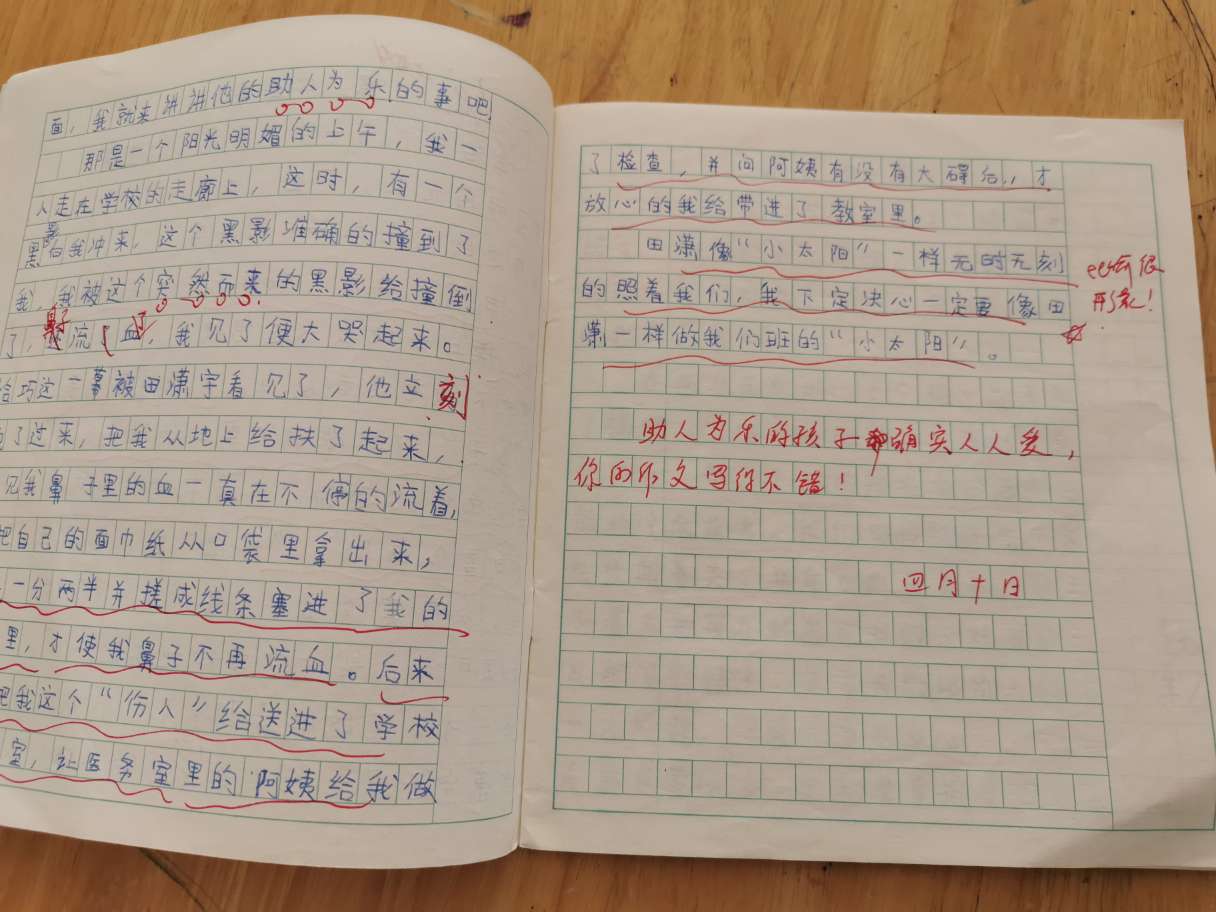 面，我就来讲讲他的助人为乐的事吧
那是一个阳光明媚的上午，我一
人走在学校的走廊上，这时，有一个
黑影向我冲来，这个黑影准确的撞到了
我，我被这个突然而来的黑影给撞倒
了，鼻子流了血，我见了便大哭起来。
恰巧这一幕被田潇宇看见了，他立刻
了过来，把我从地上给扶了起来，
见我鼻子里的血一真在不停的流着，
把自己的面巾纸从口袋里拿出来，
一分两半并搓成线条塞进了我的
里，才使我鼻子不再流血。后来
把我这个“伤人”给送进了学校
室，让医务室里的阿姨给我做
了检查，并问阿姨有没有大碍后，才
放心的我给带进了教室里。
田潇像“小太阳”一样无时无刻
的照着我们，我下定决心一定要像田
潇一样做我们班的“小太阳”。
比喻很
形象！
助人为乐的孩子确实人人爱，
你的作文写得不错！
四月十日